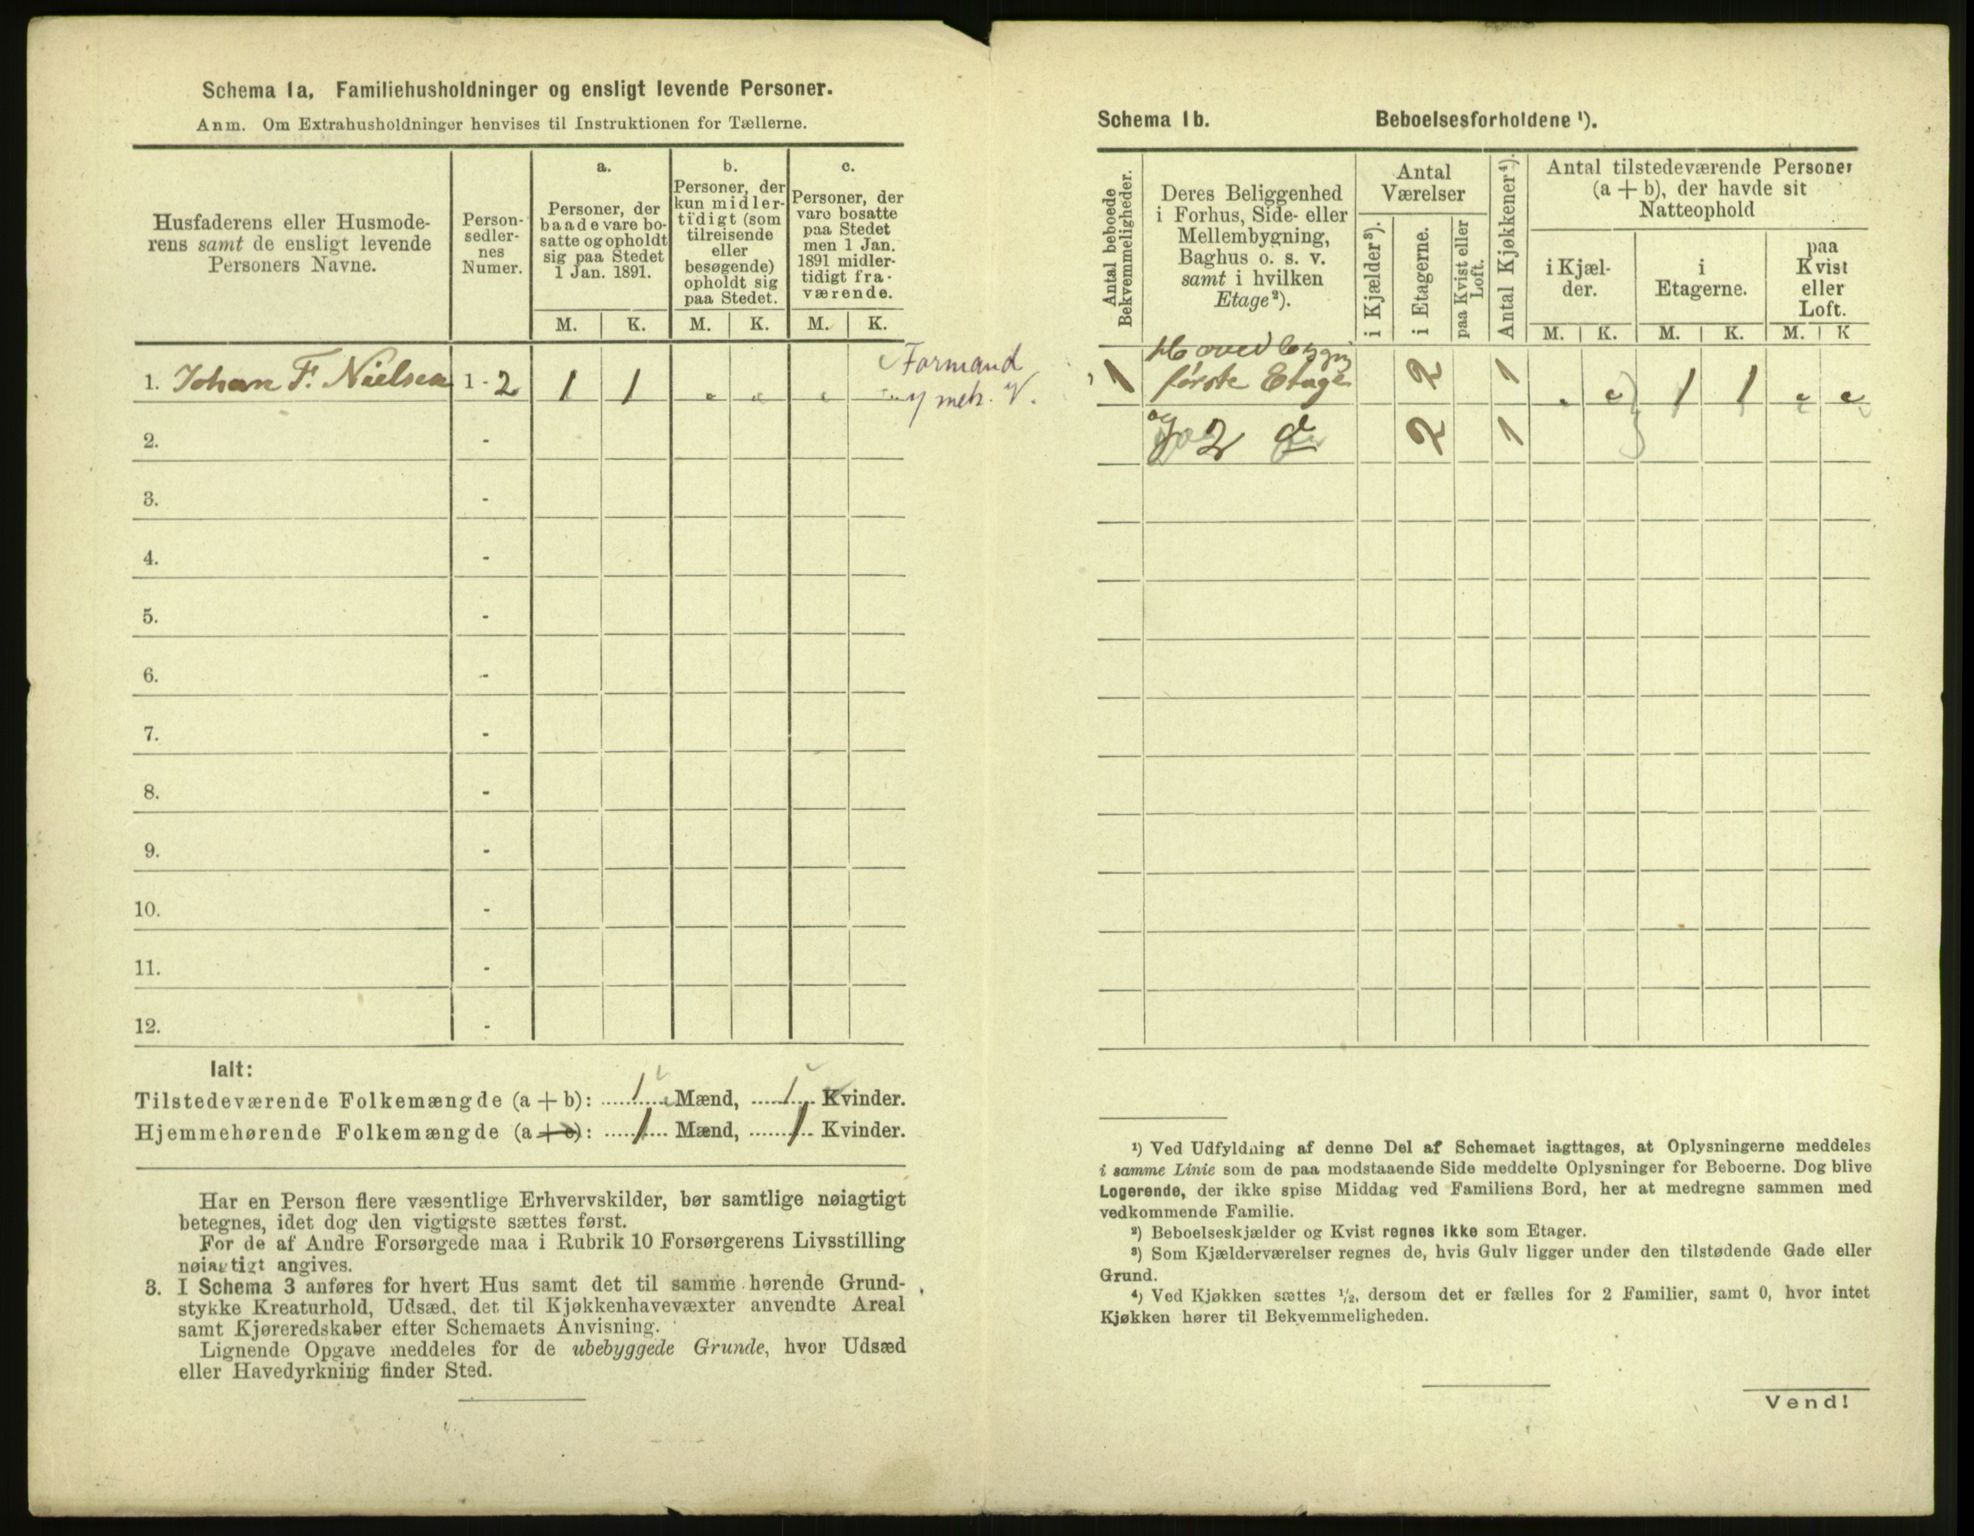 Schema 1a, Familiehusholdninger og ensligt levende Personer.
Anm. Om Extrahusholdninger henvises til Instruktionen for Tællerne.
Husfaderens eller Husmode-
rens samt de ensligt levende
Personers Navne.
Person-
sedler-
nes
Numer.
a.
Personer, der
baade vare bo-
satte og opholdt
sig paa Stedet
1 Jan. 1891.
b.
Personer, der
kun midler-
tidigt (som
tilreisende
eller
besøgende)
opholdt sig
paa Stedet.
c.
Personer, der
vare bosatte
paa Stedet
men 1 Jan.
1891 midler-
tidigt fra-
værende.
M. K. M. K. M. K.
1. Johan F. Nielsen 1 - 2 1 1 Formand
2. -
3. -
4. -
5. -
6. -
7. -
8. -
9. -
10. -
11. -
12. -
Ialt:
Tilstedeværende Folkemængde (a + b): 1 Mænd, 1 Kvinder.
Hjemmehørende Folkemængde (a + c): 1 Mænd, 1 Kvinder.
Har en Person flere væsentlige Erhvervskilder, bør samtlige nøiagtigt
betegnes, idet dog den vigtigste sættes først.
For de af Andre Forsørgede maa i Rubrik 10 Forsørgerens Livsstilling
nøiagtigt angives.
3. I Schema 3 anføres for hvert Hus samt det til samme hørende Grund-
stykke Kreaturhold, Udsæd, det til Kjøkkenhavevæxter anvendte Areal
samt Kjøreredskaber efter Schemaets Anvisning.
Lignende Opgave meddeles for de ubebyggede Grunde, hvor Udsæd
eller Havedyrkning finder Sted.
Schema 1b. Beboelsesforholdene ¹).
Antal beboede
Bekvemmeligheder.
Deres Beliggenhed
i Forhus, Side- eller
Mellembygning,
Baghus o. s. v.
samt i hvilken
Etage²).
Antal
Værelser
i Kjælder³).
i Etagerne.
paa Kvist eller
Loft.
Antal Kjøkkener⁴).
Antal tilstedeværende Personer
(a + b), der havde sit
Natteophold
i Kjæl-
der.
i
Etagerne.
paa
Kvist
eller
Loft.
M. K. M. K. M. K
Hovedbygn
1 første Etage 2 1 1 1
og
2 d 2 1
¹) Ved Udfyldning af denne Del af Schemaet iagttages, at Oplysningerne meddeles
i samme Linie som de paa modstaaende Side meddelte Oplysninger for Beboerne. Dog blive
Logerende, der ikke spise Middag ved Familiens Bord, her at medregne sammen med
vedkommende Familie.
²) Beboelseskjælder og Kvist regnes ikke som Etager.
³) Som Kjælderværelser regnes de, hvis Gulv ligger under den tilstødende Gade eller
Grund.
⁴) Ved Kjøkken sættes ½, dersom det er fælles for 2 Familier, samt 0, hvor intet
Kjøkken hører til Bekvemmeligheden.
Vend!